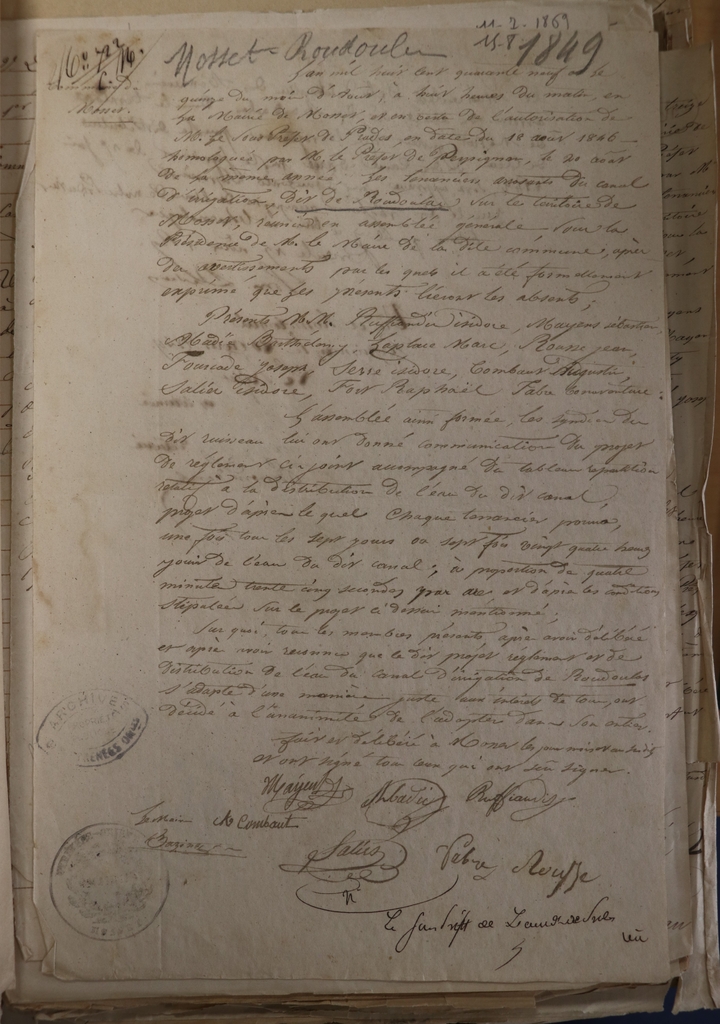 11-2-1869
15-8-1849
Mosset - Roudoulet
Mosset.
L'an mil huit cent quarante neuf et le
quinze du mois d'août, à huit heures du matin, en
la Mairie de Mosset, et en vertu de l'autorisation de
M. le Sous Préfet de Prades, en date du 18 août 1846
homologuée par M. le Préfet de Perpignan, le 20 août
de la même année, les tenanciers arrosants du canal
d'irrigation, dit de Roudoulet sur le territoire de
Mosset, réunis en assemblée générale sous la
Présidence de M. le Maire de la dite commune, après
des avertissements par les quels il a été formellement
exprimé que les présents lieront les absents;
Présents M.M. Ruffiandis isidore, Mayens sébastien,
Abadie Barthélemy, Laplace Marc, Rousse jean,
Fourcade joseph, Serre isidore, Combaut
Salies isidore, Fort Raphaël, Fabre bonnaventure.
L'assemblée ainsi formée, les syndics du
dit ruisseau lui ont donné communication du projet
de règlement ci joint accompagné du tableau répartition
relatif à la distribution de l'eau du dit canal
projet d'après le quel chaque tenancier pourra,
une fois tous les sept jours ou sept fois vingt quatre heures
jouir de l'eau du dit canal, à proportion de quatre
minutes trente cinq secondes par are et d'après les conditions
stipulées sur le projet ci dessus mentionné;
Sur quoi, tous les membres présents, après avoir délibéré
et après avoir reconnu que le dit projet règlement et de
distribution de l'eau du canal d'irrigation de Roudoulet
s'adapte d'une manière juste aux intérêts de tous, ont
décidé à l'unanimité de l'adopter dans son entier.
Fait et délibéré à Mosset les jour mois et an susdits
et ont signé tous ceux qui ont su signer.
Mayens Abadie Ruffiandis
Le Maire Combaut
Salies Fabre Rousse
ARCHIVES
PYRÉNÉES ORles